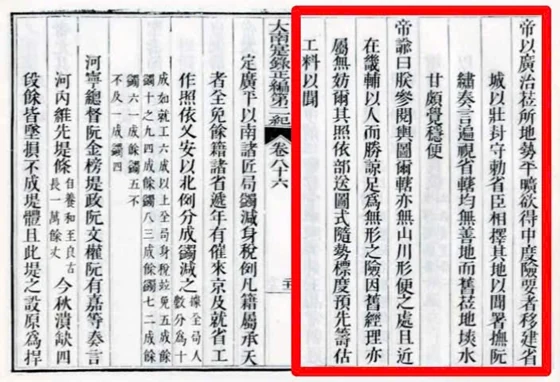 帝以廣治莅所地勢平曠欲得中度險要者移建省
城以壯封守勅省臣相擇其地以聞署撫阮
繡奏言遍視省轄均無善地而舊莅地埮水
甘頗覺穩便
帝諭曰朕參閱輿圖爾轄亦無山川形便之處且近
在畿輔以人而勝諒足為無形之險因舊經理亦
屬無妨爾其照依部送圖式隨勢標度預先籌估
工料以聞
大南寔錄正編第二紀 卷八十六
定廣平以南諸匠局鐲減身稅例凡籍屬承天
者全免餘籍諸省遞年有催來京及就省工
作照依乂安以北例分成鐲減之 據全局人數分為十
成如就工六成以上全局身稅竝免五成餘
鐲十之九四成餘鐲八三成餘鐲七二成餘
鐲六一成餘鐲五不
及一成鐲四
河寧總督阮金榜堤政阮文權阮有嘉等奏言
河內維先堤條 自養和至良古長一萬餘丈 今秋潰缺四
段餘皆墜損不成堤體且此堤之設原為捍